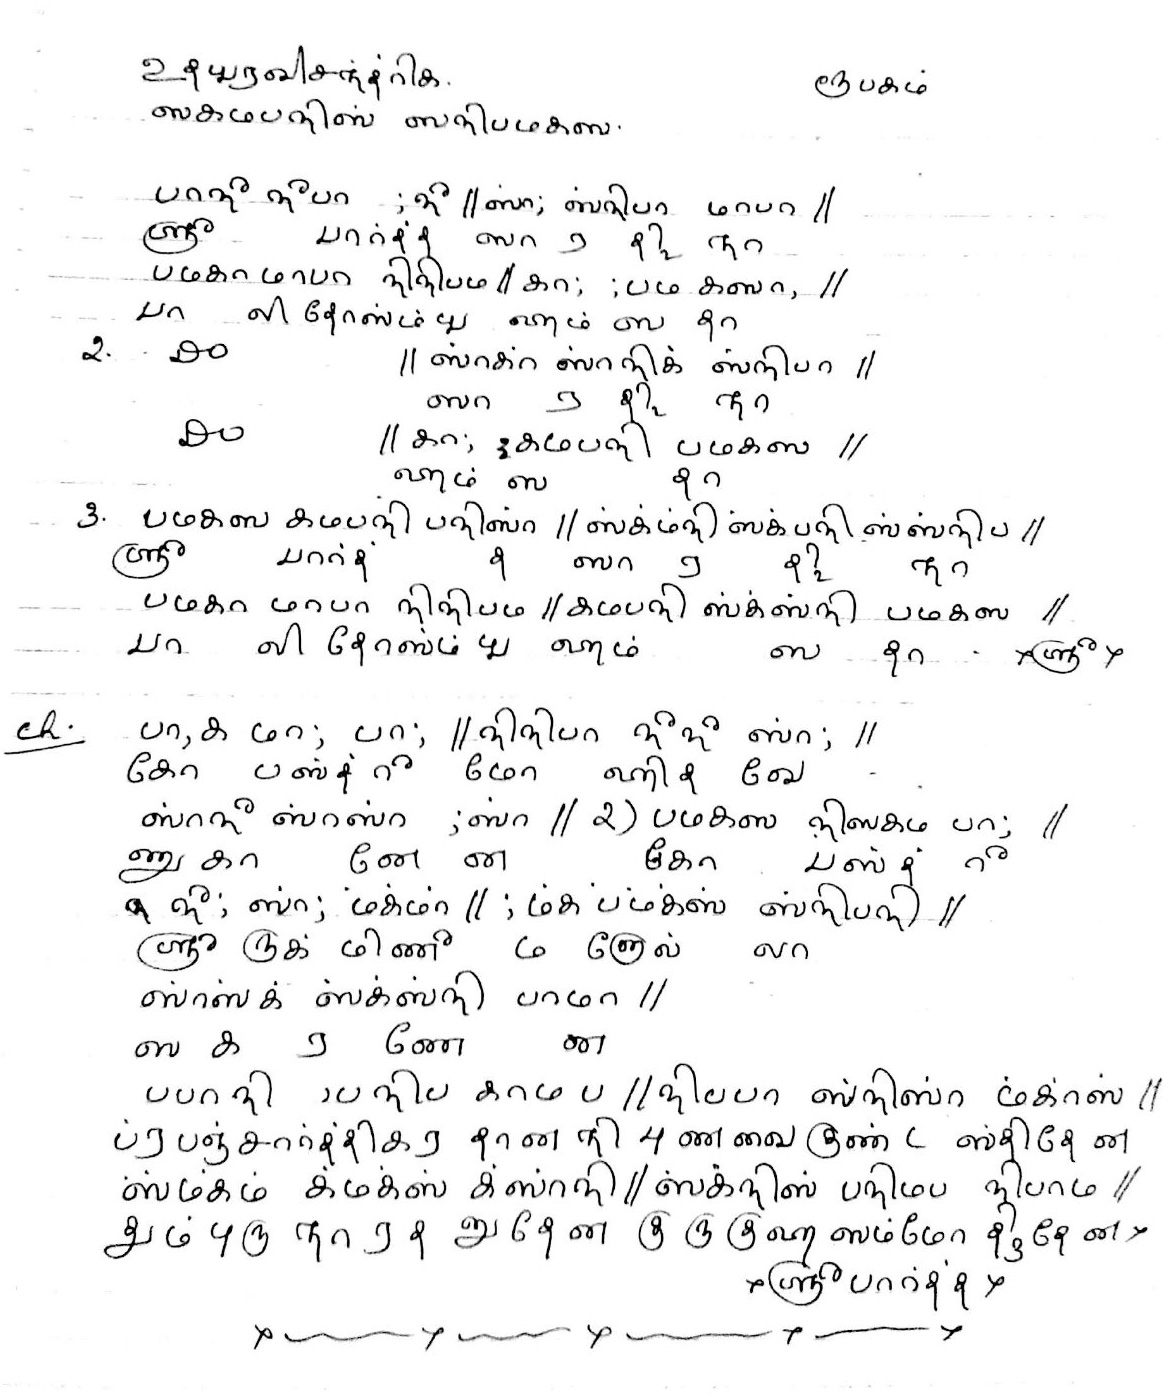 உதயரவிசந்த்ரிக. ரூபகம்
ஸகமபநிஸ் ஸநிபமகஸ.
பாநீ நீபா ;நீ // ஸ்ா; ஸ்நிபா மாபா //
ஸ்ரீ பார்த்த ஸா ர தி2 நா
பமகா மாபா நிநிபம // கா; ;பம கஸா, //
பா லி தோஸ்ம்ய ஹம் ஸ தா
2. DO // ஸ்ாக்ா ஸ்ாநிக் ஸ்நிபா //
ஸா ர தி2 நா
DO // கா; ;கமபநி பமகஸ //
ஹம் ஸ தா
3. பமகஸ கமபநி பநிஸ்ா // ஸ்க்ம்நி ஸ்க்பநி ஸ்ஸ்நிப //
ஸ்ரீ பார்த் த ஸா ர தி2 நா
பமகா மாபா நிநிபம // கமபநி ஸ்க்ஸ்நி பமகஸ //
பா லி தோஸ்ம் ய ஹம் ஸ தா . x ஸ்ரீ x
ch. பா,க மா; பா; // நிநிபா நீநீ ஸ்ா; //
கோ பஸ்த்ரீ மோ ஹித வே
ஸ்ாநீ ஸ்ாஸ்ா ;ஸ்ா // 2) பமகஸ நிஸகம பா; //
ணு கா னே ன கோ பஸ்த் ரீ
நீ; ஸ்ா; ம்க்ம்ா // ; ம்க் ப்ம்க்ஸ் ஸ்நிபநி //
ஸ்ரீ ருக் மிணீ ம னோல் லா
ஸ்ாஸ்க் ஸ்க்ஸ்நி பாமா //
ஸ க ர ணே ன
பபாநி ;பநிப காமப // நிபபா ஸ்நிஸ்ா ம்க்ாஸ் //
ப்ரபஞ்சார்த்திகர தானநி புணவைகுண்ட ஸ்திதேன
ஸ்ம்க்ம் க்ம்க்ஸ் க்ஸ்ாநி // ஸ்க்நிஸ் பநிமப நிபாம //
தும்புரு நாரத னுதேன குருகுஹ ஸம்மோ தி3தேன x
x ஸ்ரீ பார்த்த x